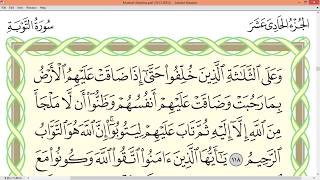 الجزء الحادي عشر
سورة التوبة
وَعَلَى ٱلثَّلَٰثَةِ ٱلَّذِينَ خُلِّفُوا۟ حَتَّىٰٓ إِذَا ضَاقَتْ عَلَيْهِمُ ٱلْأَرْضُ
بِمَا رَحُبَتْ وَضَاقَتْ عَلَيْهِمْ أَنفُسُهُمْ وَظَنُّوٓا۟ أَن لَّا مَلْجَأَ
مِنَ ٱللَّهِ إِلَّآ إِلَيْهِ ثُمَّ تَابَ عَلَيْهِمْ لِيَتُوبُوٓا۟ ۚ إِنَّ ٱللَّهَ هُوَ ٱلتَّوَّابُ
ٱلرَّحِيمُ ١١٨ يَٰٓأَيُّهَا ٱلَّذِينَ ءَامَنُوا۟ ٱتَّقُوا۟ ٱللَّهَ وَكُونُوا۟ مَعَ